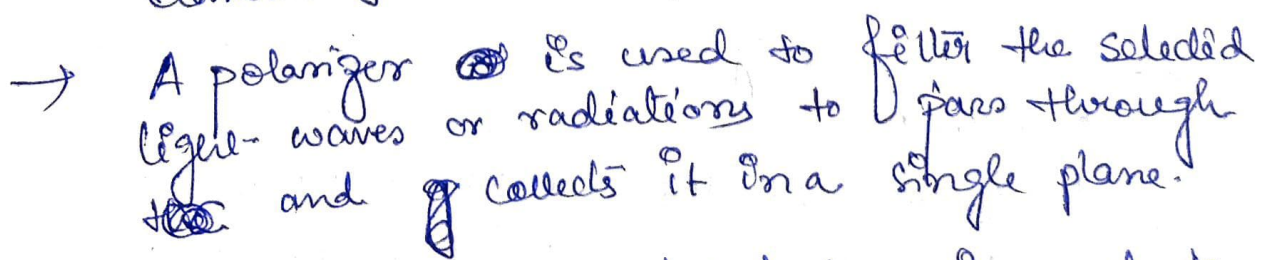 → A polarizer is used to filter the selected
light waves or radiations to pass through
and collects it in a single plane.